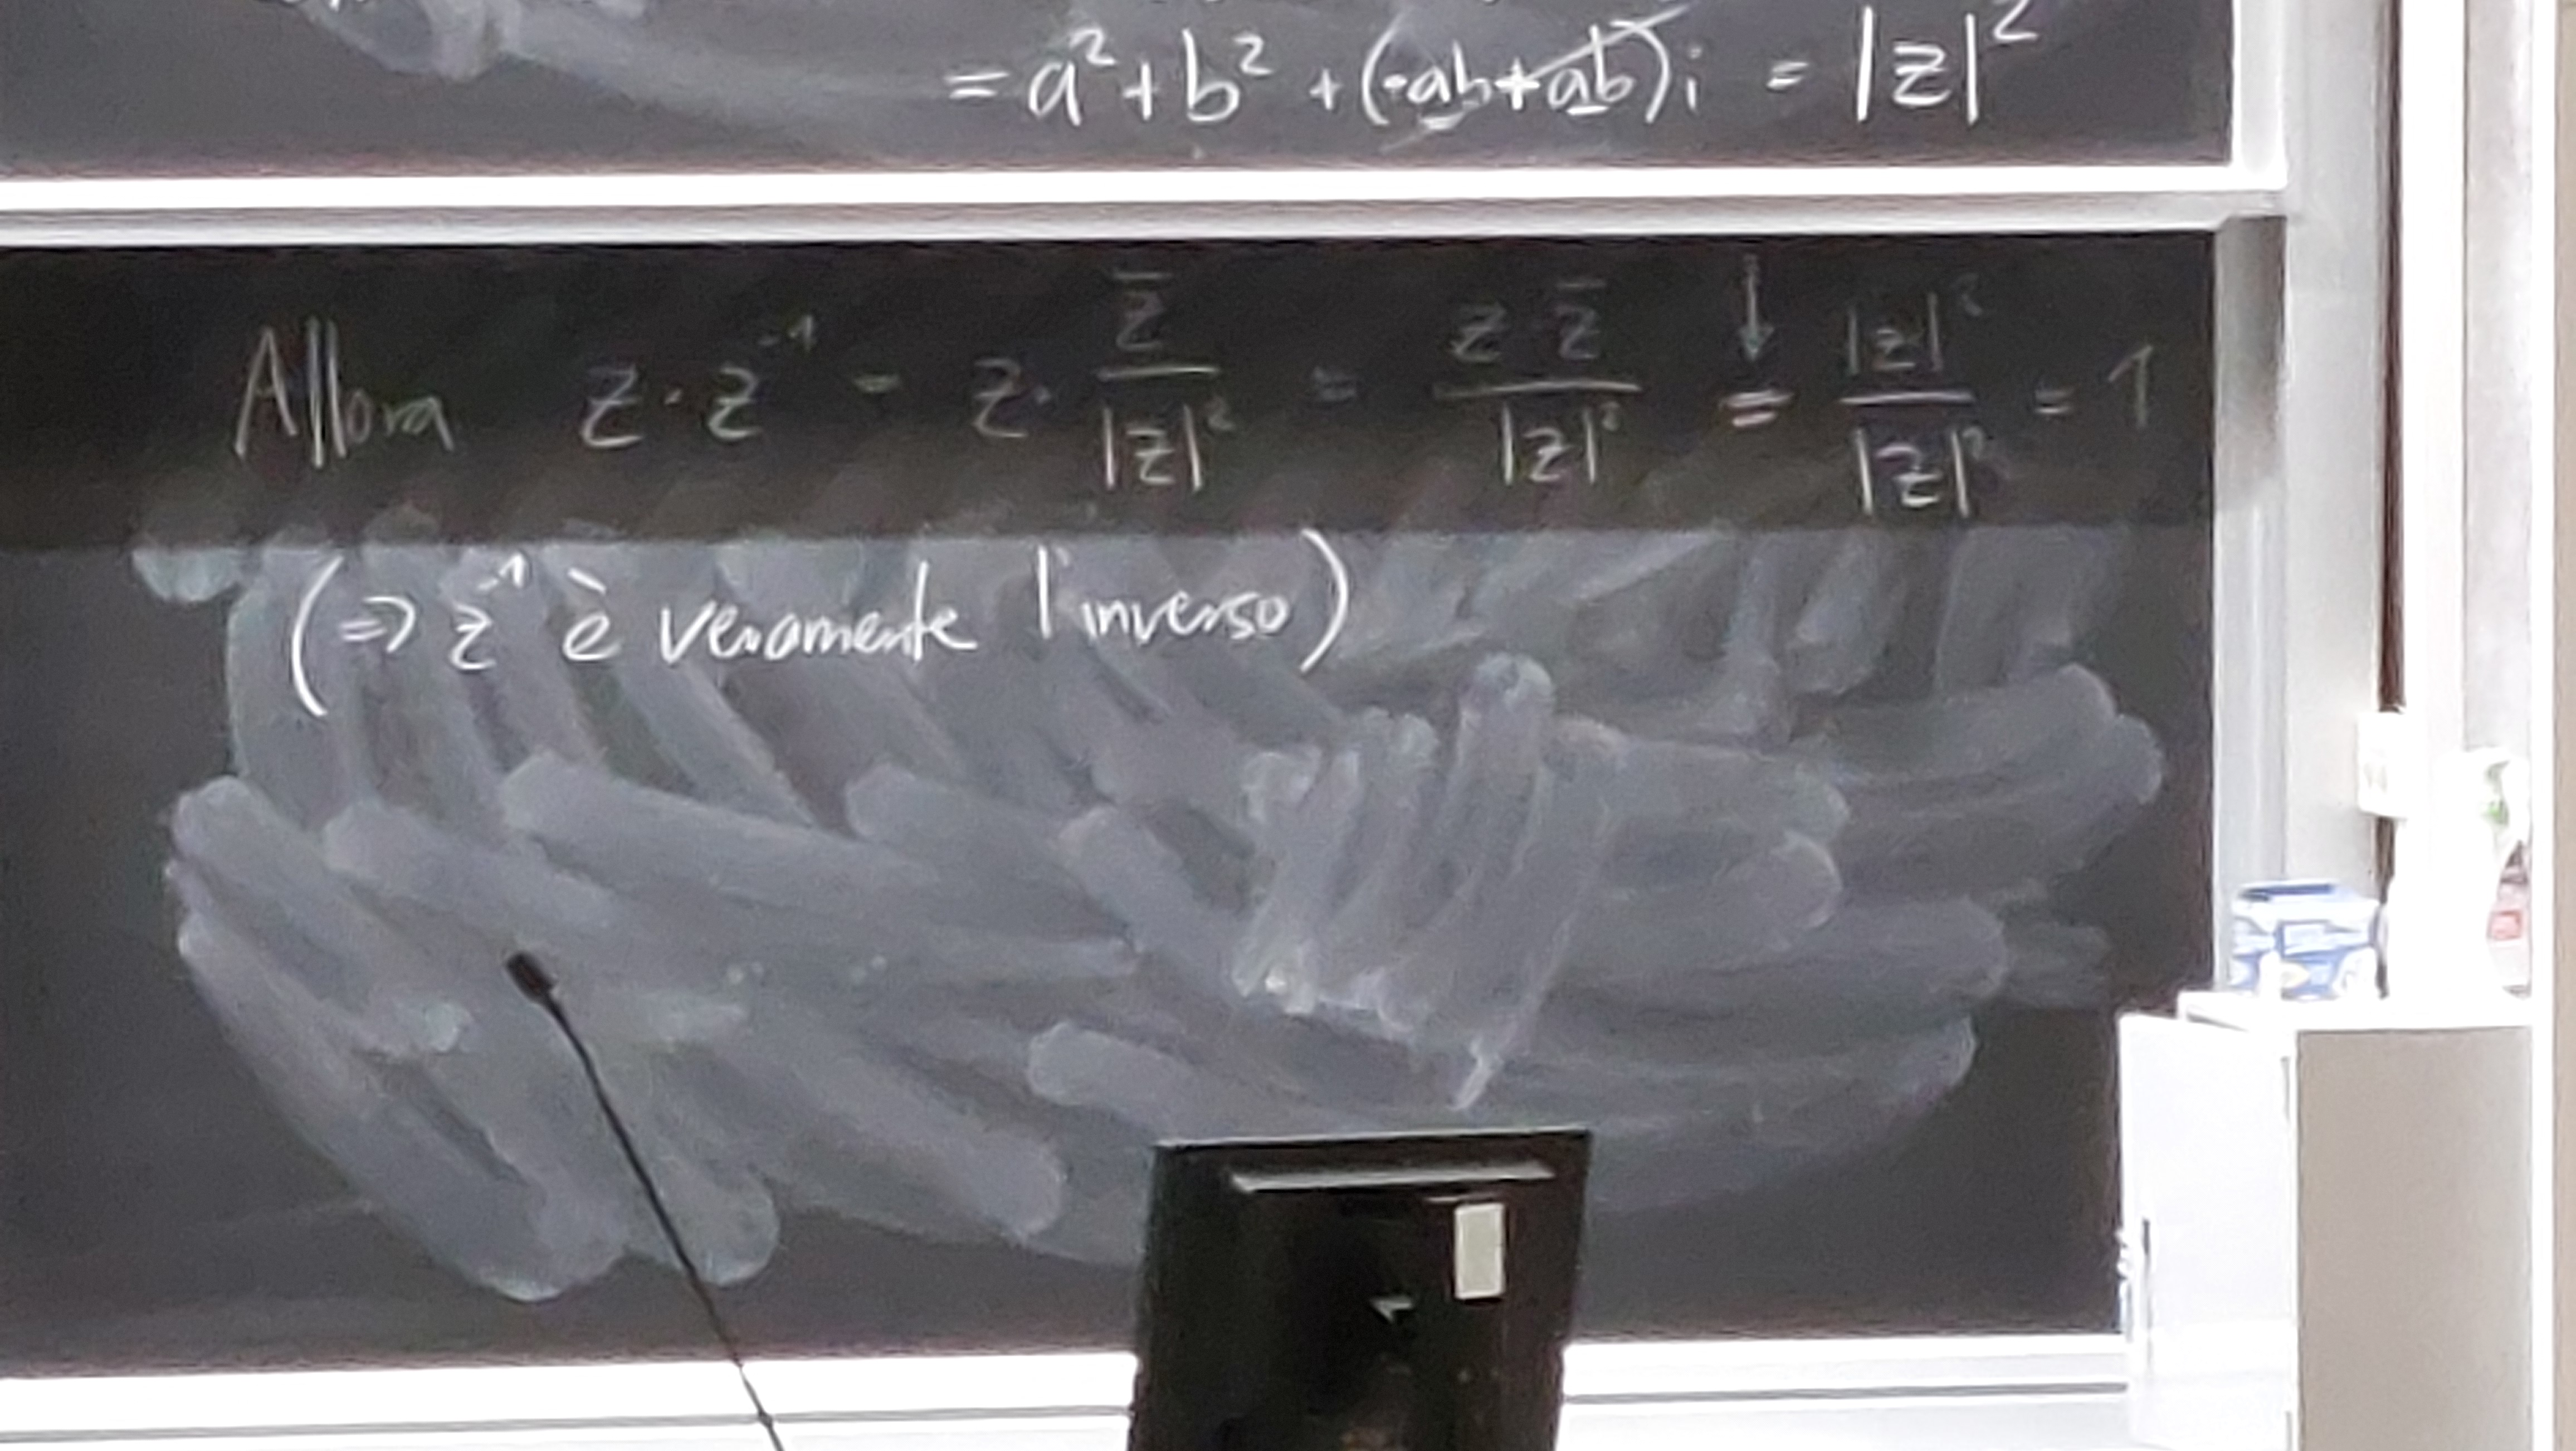 = a² + b² + (-ab+ab)i = |z|²
Allora z · z⁻¹ = z · z̅/|z|² = z z̅/|z|² = |z|²/|z|² = 1
(⇒ z⁻¹ è veramente l'inverso)